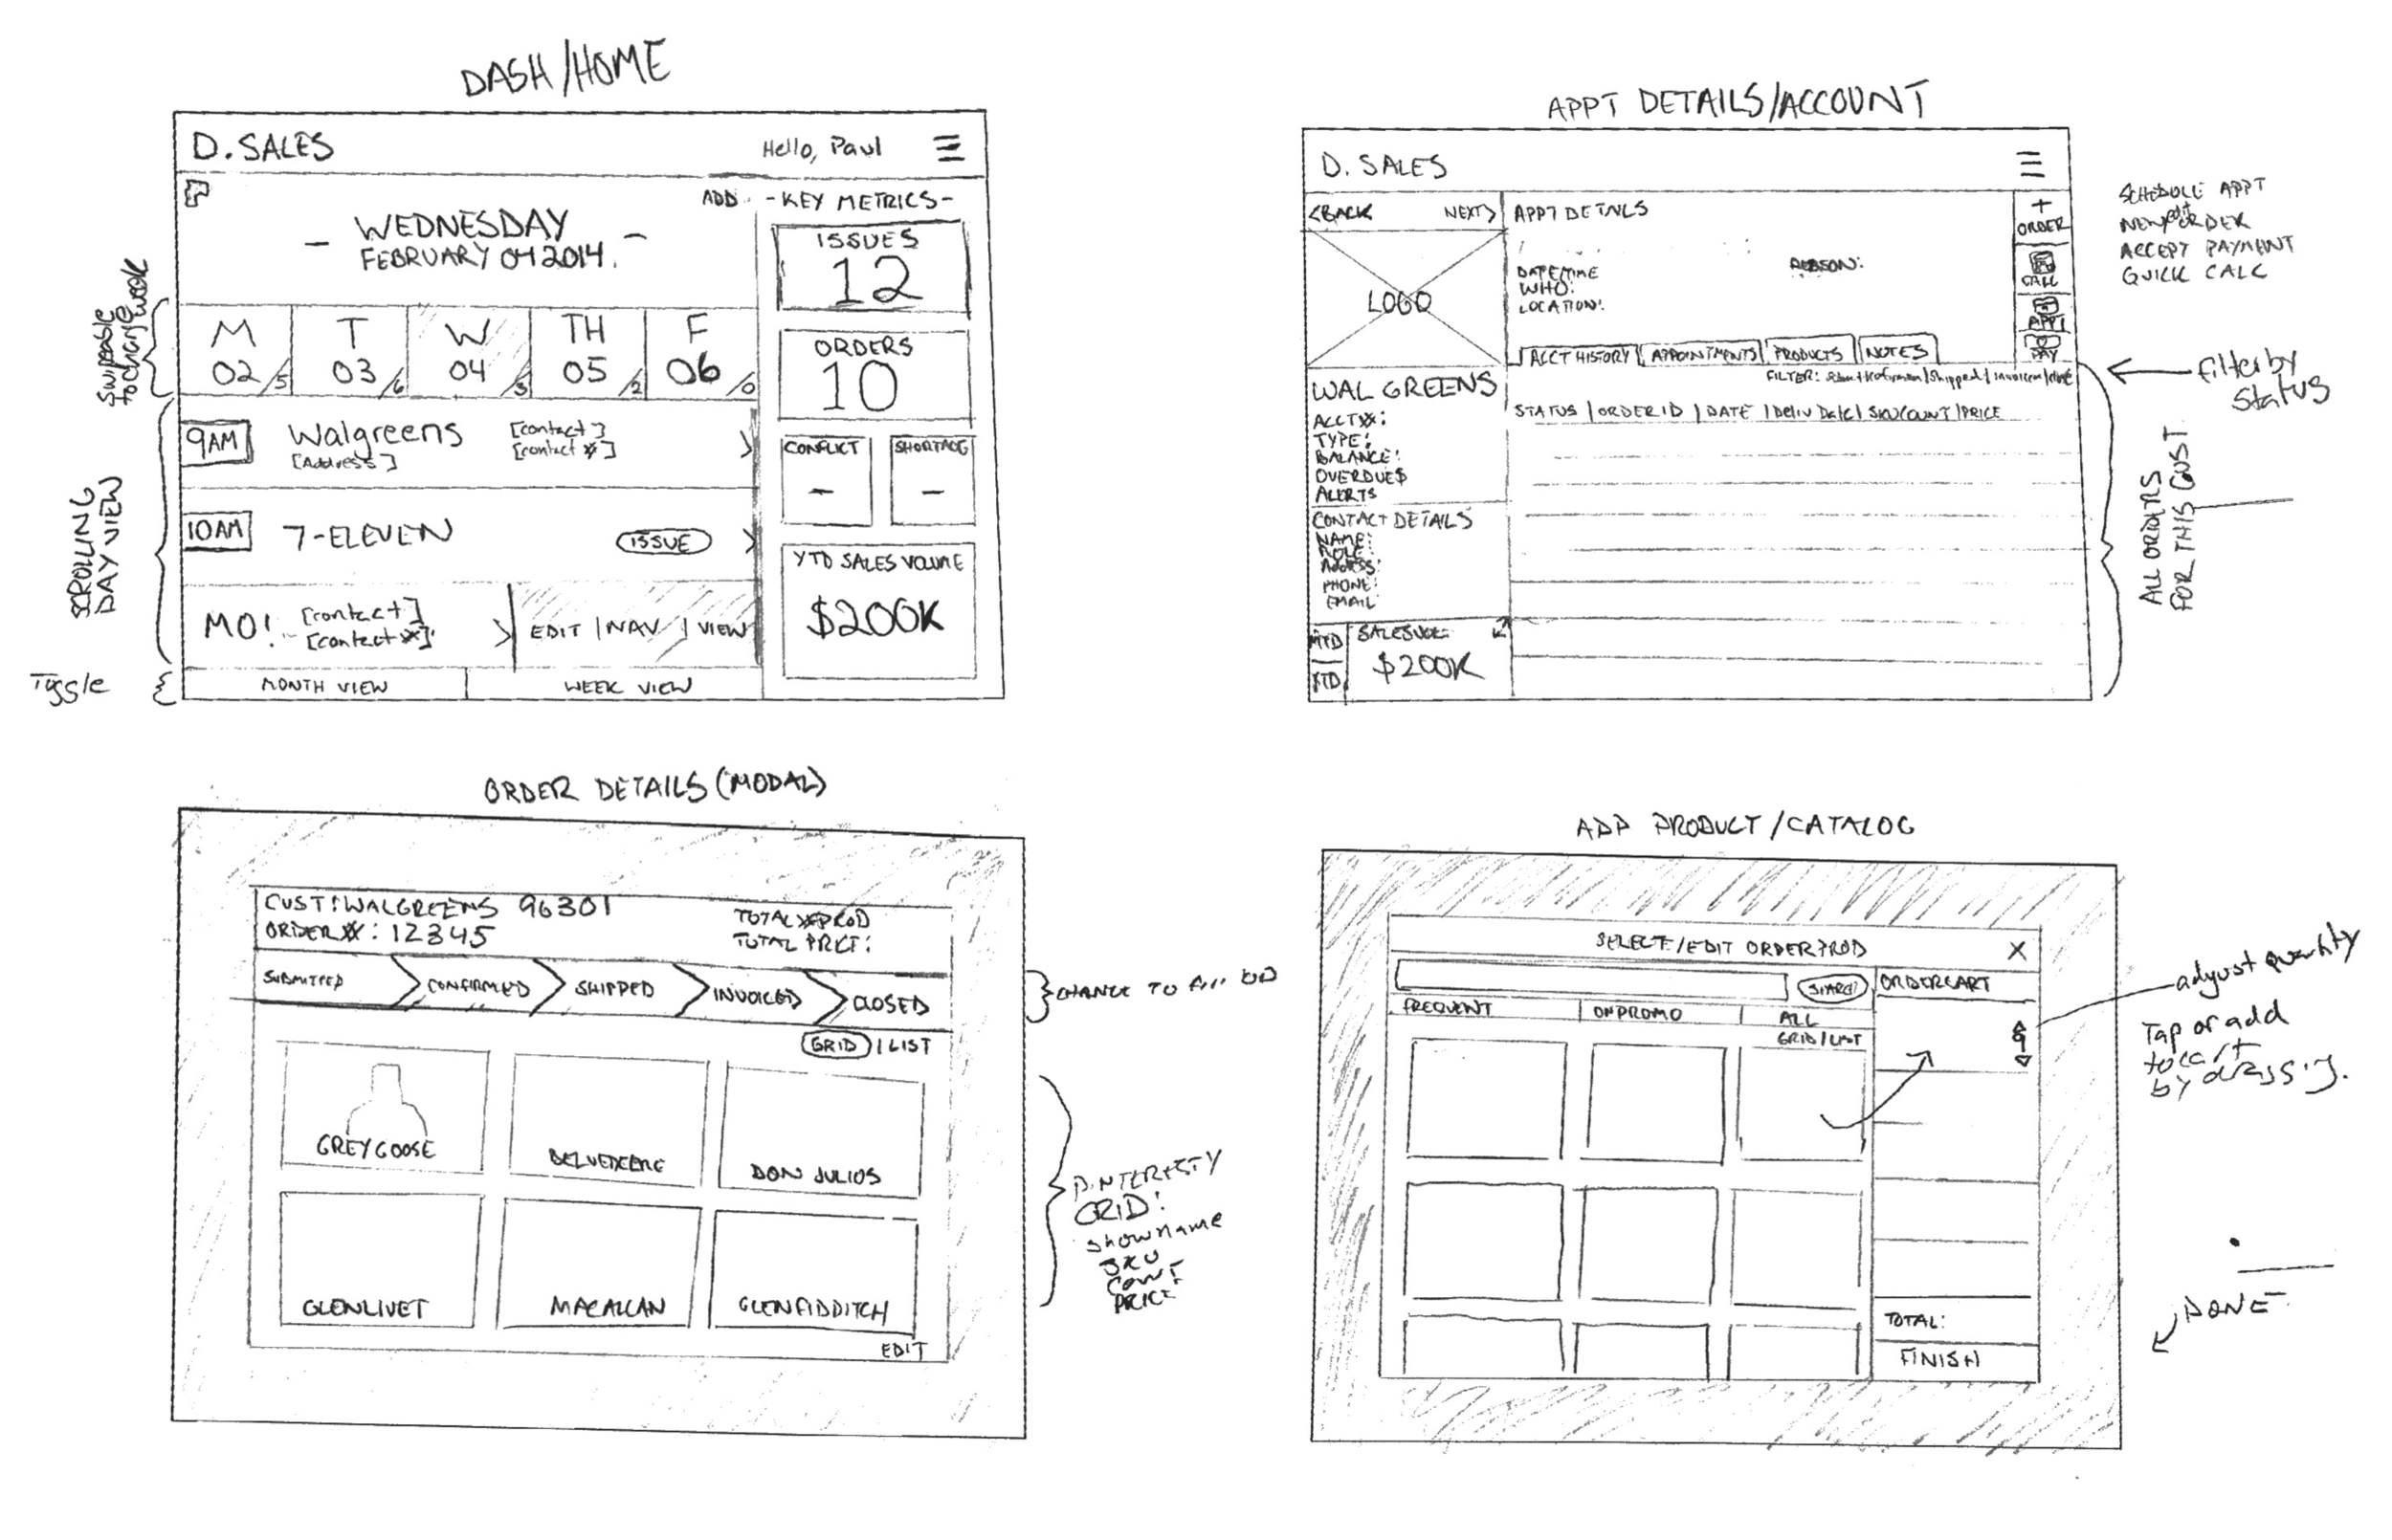 DASH/HOME
D. SALES
Hello, Paul
ADD
-KEY METRICS-
- WEDNESDAY -
FEBRUARY 04 2014.
Swipeable
to change week
M
02/5
T
03/6
W
04/3
TH
05/2
F
06/0
SCROLLING
DAY VIEW
9AM
Walgreens
[Address]
[contact]
[contact #]
10AM
7-ELEVEN
ISSUE
MO!
[contact]
[contact #]
EDIT | NAV | VIEW
Toggle
MONTH VIEW
WEEK VIEW
ISSUES
12
ORDERS
10
CONFLICT
-
SHORTAGE
-
YTD SALES VOLUME
$200K
APPT DETAILS/ACCOUNT
D. SALES
<BACK
NEXT>
APPT DETAILS
LOGO
DATE/TIME
WHO:
LOCATION:
REASON:
+
ORDER
CALC
APPT
PAY
SCHEDULE APPT
NEW/edit ORDER
ACCEPT PAYMENT
QUICK CALC
ACCT HISTORY
APPOINTMENTS
PRODUCTS
NOTES
filter by
status
STATUS | ORDER ID | DATE | Deliv Date | SKU COUNT | PRICE
WALGREENS
ACCT#:
TYPE:
BALANCE:
OVERDUE$
ALERTS
CONTACT DETAILS
NAME:
ROLE:
Address:
PHONE:
EMAIL
MTD
YTD
SALESVOL:
$200K
ALL ORDERS
FOR THIS CUST
ORDER DETAILS (MODAL)
CUST: WALGREENS 96301
ORDER#: 12345
TOTAL #PROD
TOTAL PRICE:
SUBMITTED
CONFIRMED
SHIPPED
INVOICED
CLOSED
GRID | LIST
GREYGOOSE
BELVEDERE
DON JULIOS
GLENLIVET
MACALLAN
GLENFIDDITCH
EDIT
CHANGE TO
PINTERESTY
GRID:
show name
SKU
COUNT
PRICE
ADD PRODUCT/CATALOG
SELECT/EDIT ORDER PROD
X
SEARCH
ORDERCART
FREQUENT
ON PROMO
ALL
GRID/LIST
9
TOTAL:
FINISH
adjust quantity
Tap or add
to cart
by dragging.
DONE